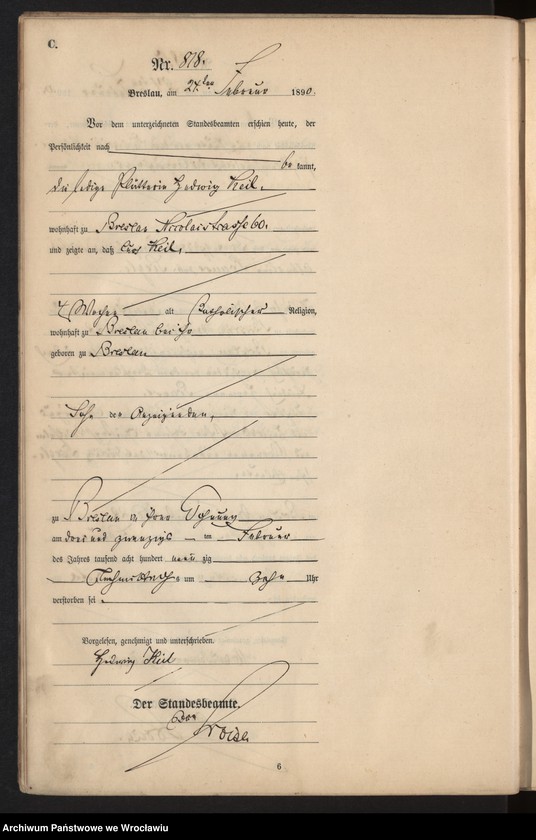 C.
Nr. 818.
Breslau, am 24ten Februar 1890.
Vor dem unterzeichneten Standesbeamten erschien heute, der
Persönlichkeit nach
be kannt,
die ledige Plätterin Hedwig Keil,
wohnhaft zu Breslau Nicolaistrasse 60.
und zeigte an, daß Keil,
Wochen alt katholischer Religion,
wohnhaft zu Breslau bei ihr
geboren zu Breslau
Sohn der Anzeigenden,
zu Breslau in ihrer Wohnung
am drei und zwanzigs ten Februar
des Jahres tausend acht hundert neun zig
Nachmittags um zehn Uhr
verstorben sei.
Vorgelesen, genehmigt und unterschrieben.
Hedwig Keil
Der Standesbeamte.
6
Archiwum Państwowe we Wrocławiu